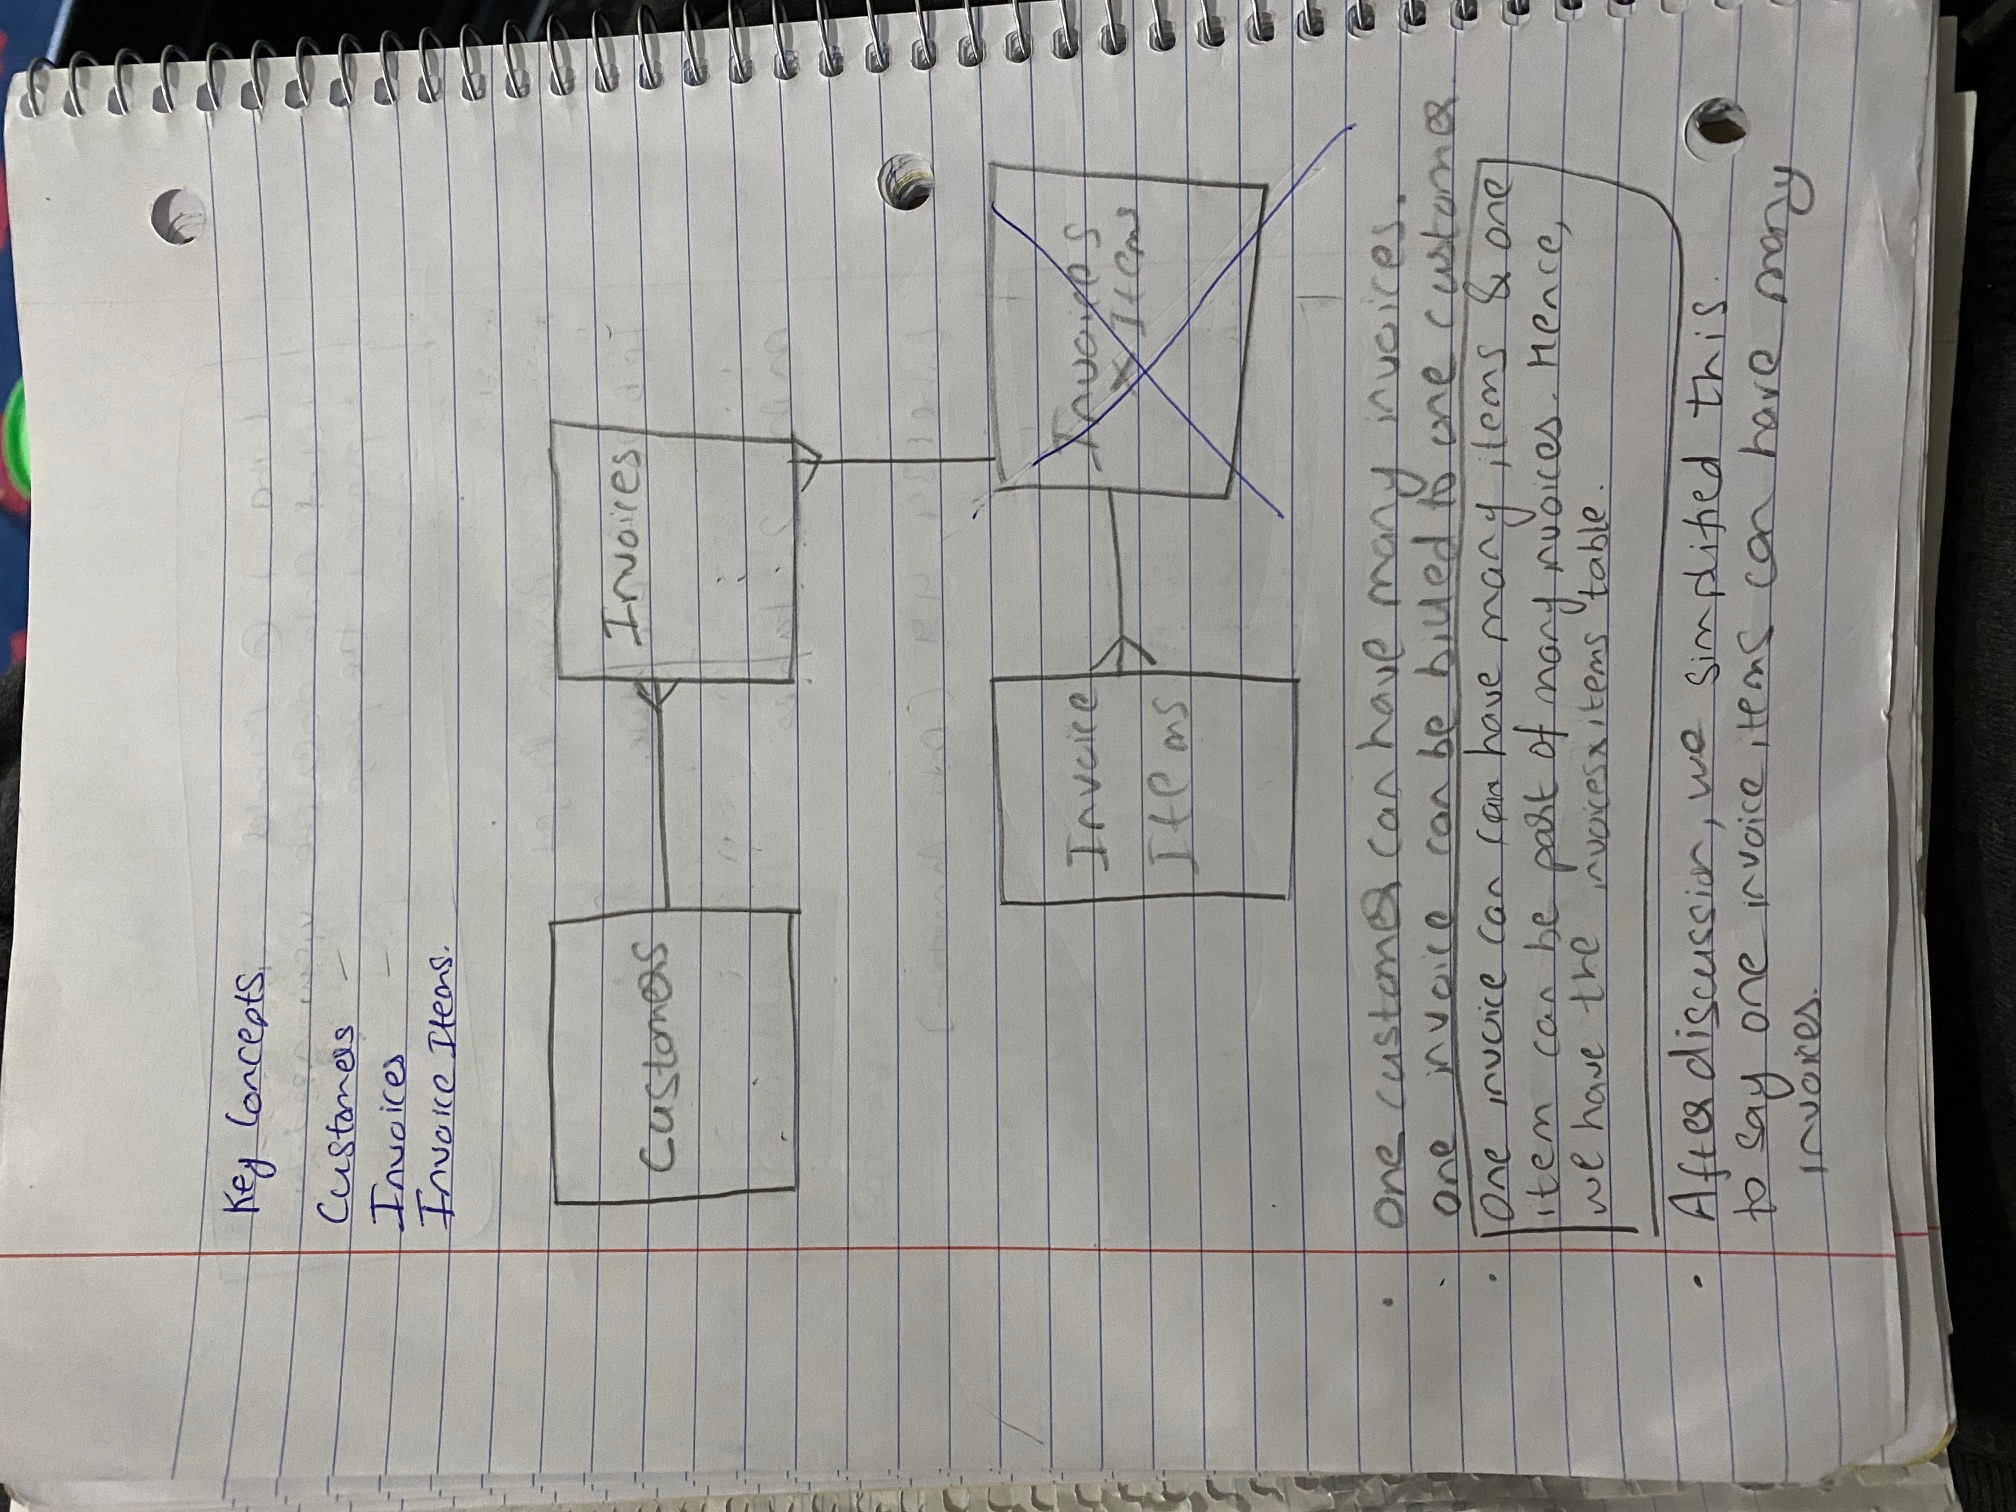 Key Concepts
Customers -
Invoices -
Invoice Items.
Customers
Invoices
Invoice
Items
Invoices
x Items
• One customer can have many invoices.
• one invoice can be billed to one customer
• One invoice can can have many items & one
item can be part of many invoices. Hence,
we have the invoicesxitems table.
• After discussion, we simplified this.
to say one invoice items can have many
invoices.